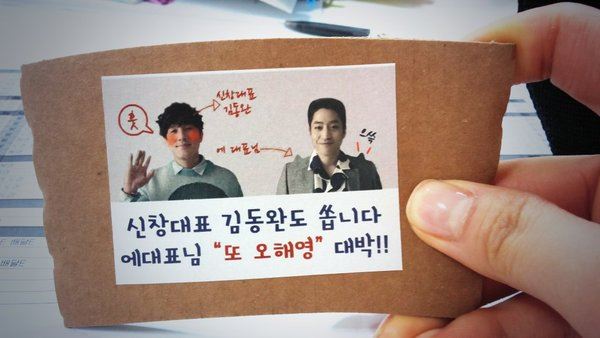 훗
신창대표
김동완
에 대표님
으쓱
신창대표 김동완도 쏩니다
에대표님 "또 오해영" 대박!!